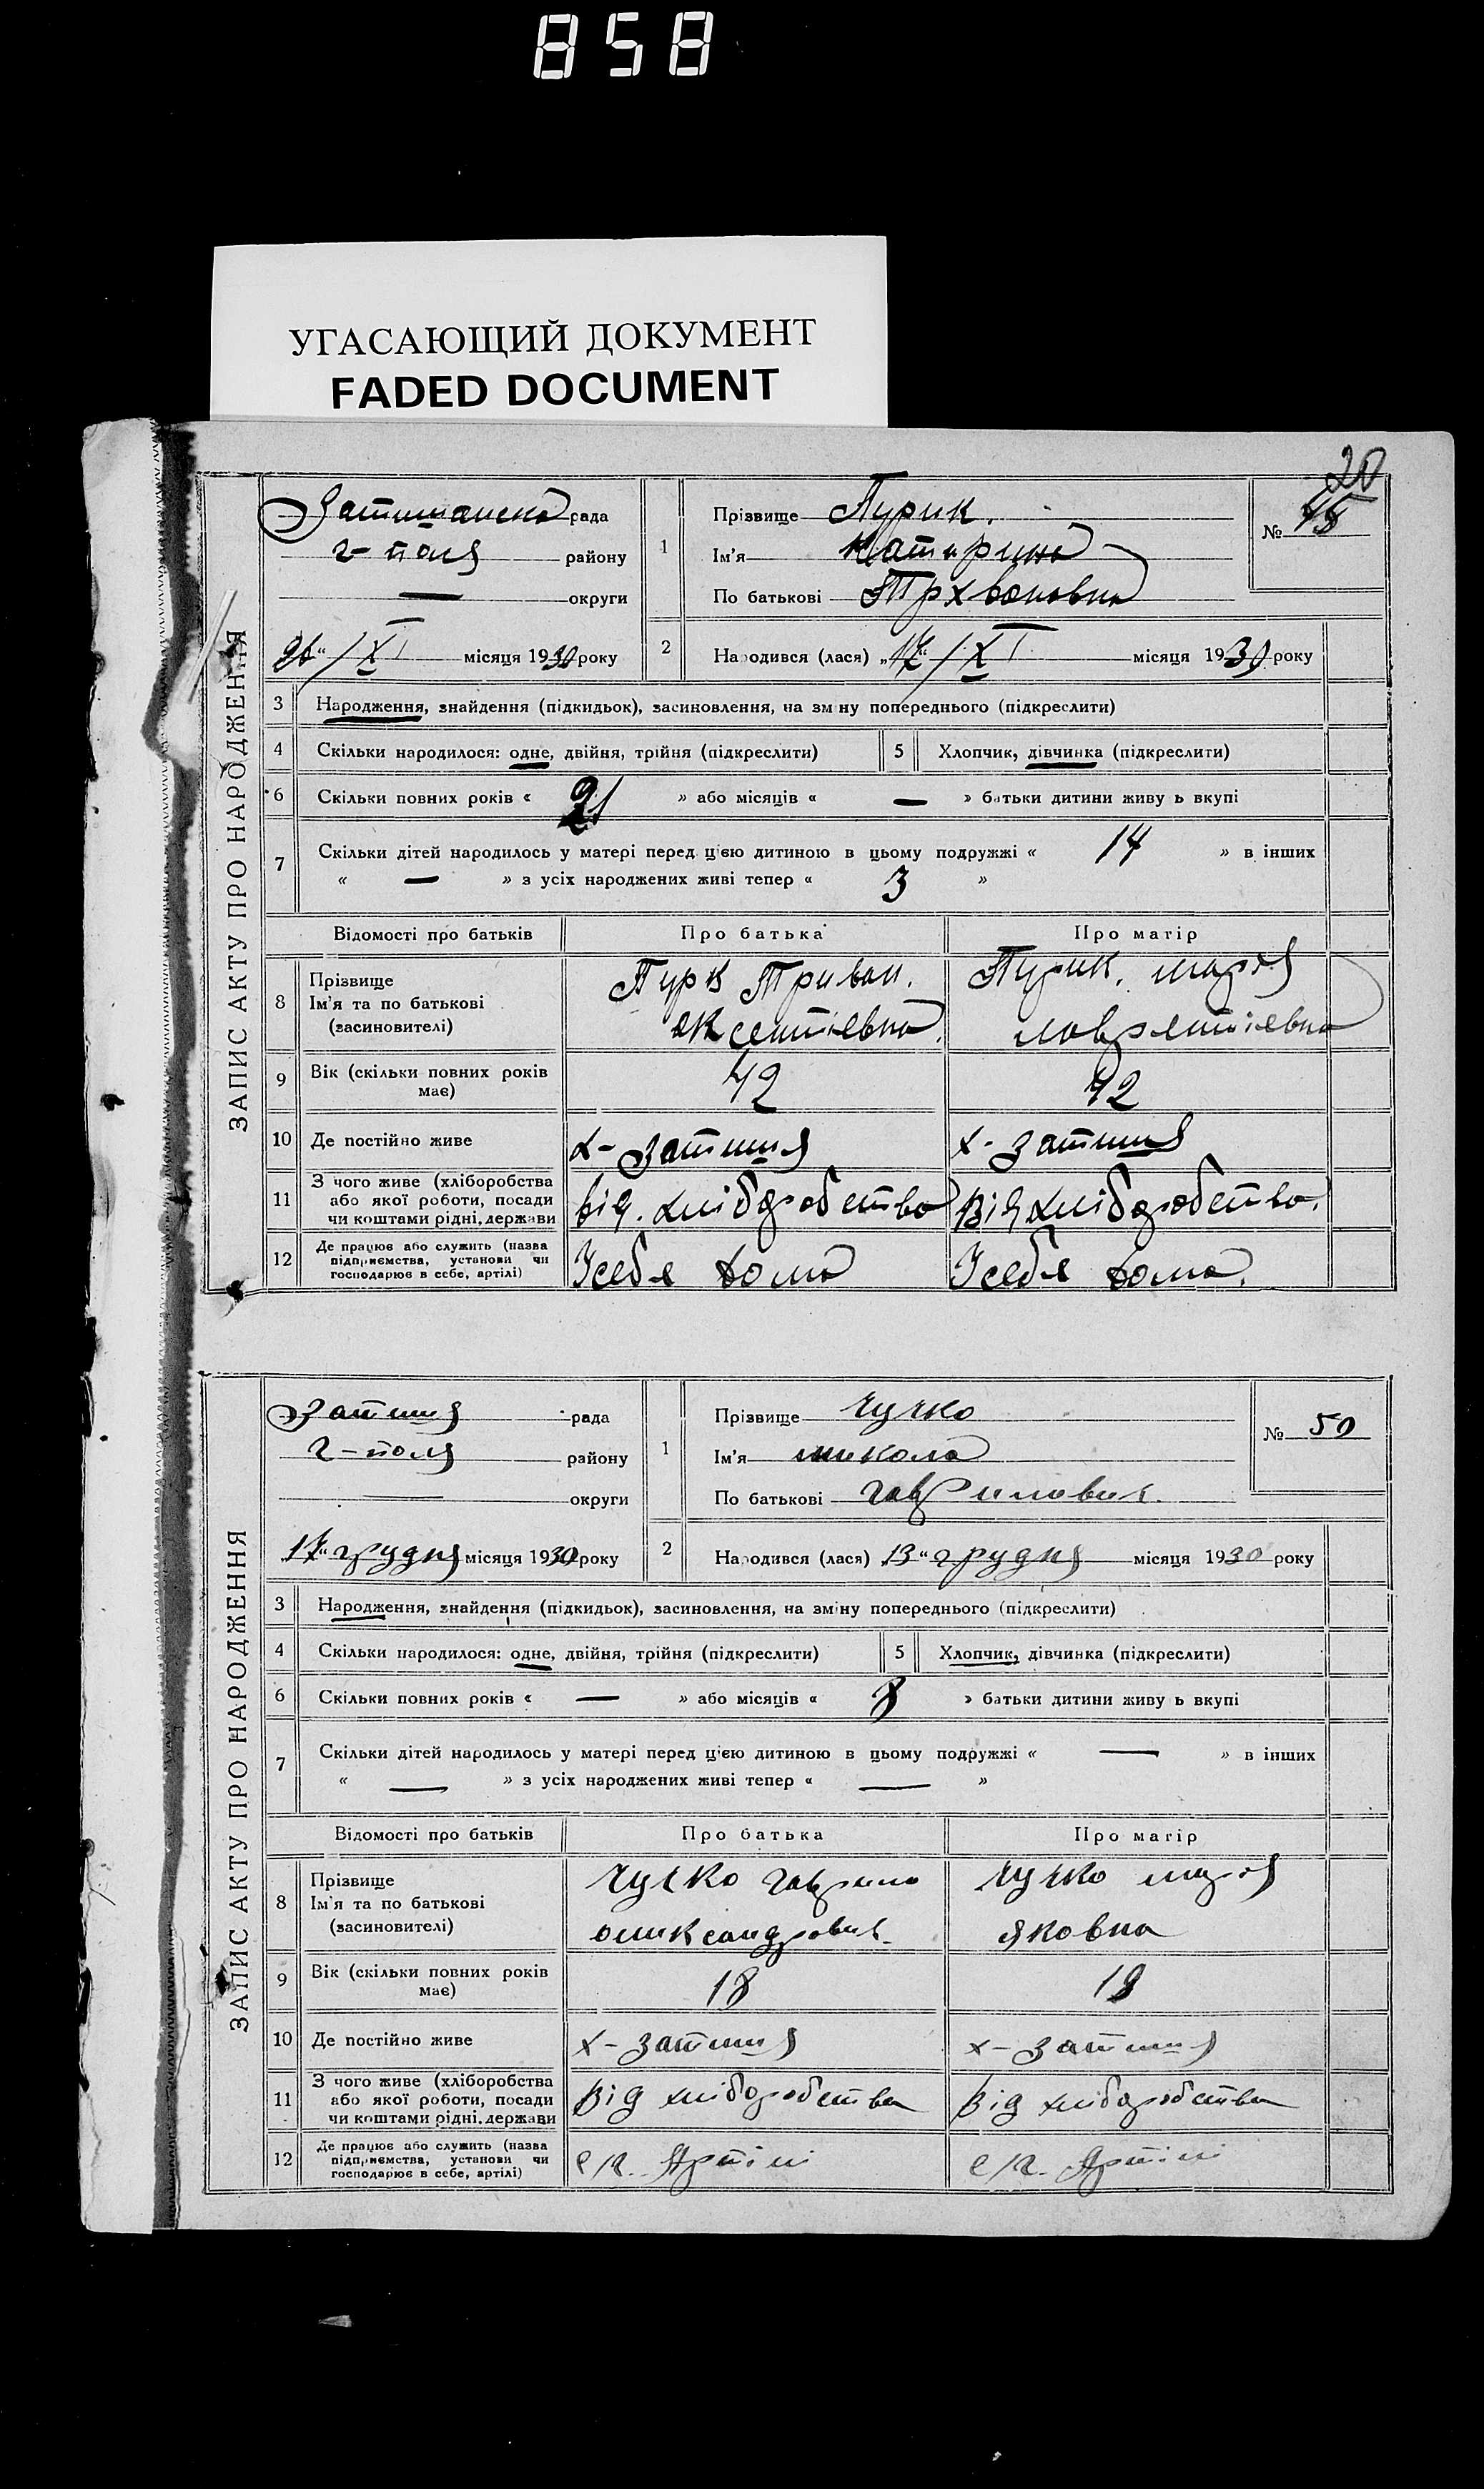 858
УГАСАЮЩИЙ ДОКУМЕНТ
FADED DOCUMENT
20
ЗАПИС АКТУ ПРО НАРОДЖЕННЯ
Затишанска рада
г-поля району
— округи
26 " / XI місяця 1930 року
1 Прізвище Пурик.
Ім'я Катирина
По батькові Трхвоновна
№ 45
2 Народився (лася) „17" / XI місяця 1930 року
3 Народження, знайдення (підкидьок), засиновлення, на зміну попереднього (підкреслити)
4 Скільки народилося: одне, двійня, трійня (підкреслити) 5 Хлопчик, дівчинка (підкреслити)
6 Скільки повних років « 21 » або місяців « — » батьки дитини живуть вкупі
7 Скільки дітей народилось у матері перед цією дитиною в цьому подружжі « 14 » в інших
« — » з усіх народжених живі тепер « 3 »
Відомості про батьків Про батька Про матір
8 Прізвище
Ім'я та по батькові
(засиновителі)
Пурк Триван.
Пурик. мария
лаврентіевна
9 Вік (скільки повних років має) 42 42
10 Де постійно живе х-затишя х-затишя
11 З чого живе (хліборобства
або якої роботи, посади
чи коштами рідні, держави
від. хліборобства від хліборобства.
12 Де працює або служить (назва
підприємства, установи чи
господарює в себе, артілі)
Усебе дома Усебе дома.
ЗАПИС АКТУ ПРО НАРОДЖЕННЯ
Затишя рада
г-поля району
— округи
17 " грудня місяця 1930 року
1 Прізвище Чучко
Ім'я микола
По батькові гаврилович.
№ 50
2 Народився (лася) „13" грудня місяця 1930 року
3 Народження, знайдення (підкидьок), засиновлення, на зміну попереднього (підкреслити)
4 Скільки народилося: одне, двійня, трійня (підкреслити) 5 Хлопчик, дівчинка (підкреслити)
6 Скільки повних років « — » або місяців « 8 » батьки дитини живуть вкупі
7 Скільки дітей народилось у матері перед цією дитиною в цьому подружжі « — » в інших
« — » з усіх народжених живі тепер « — »
Відомості про батьків Про батька Про матір
8 Прізвище
Ім'я та по батькові
(засиновителі)
Чучко гаврило
олександрович.
Чучко мария
яковна
9 Вік (скільки повних років має) 18 18
10 Де постійно живе х-затишя х-затишя
11 З чого живе (хліборобства
або якої роботи, посади
чи коштами рідні, держави
Від хліборобства Від хліборобства
12 Де працює або служить (назва
підприємства, установи чи
господарює в себе, артілі)
с/г. Артілі с/г. Артілі